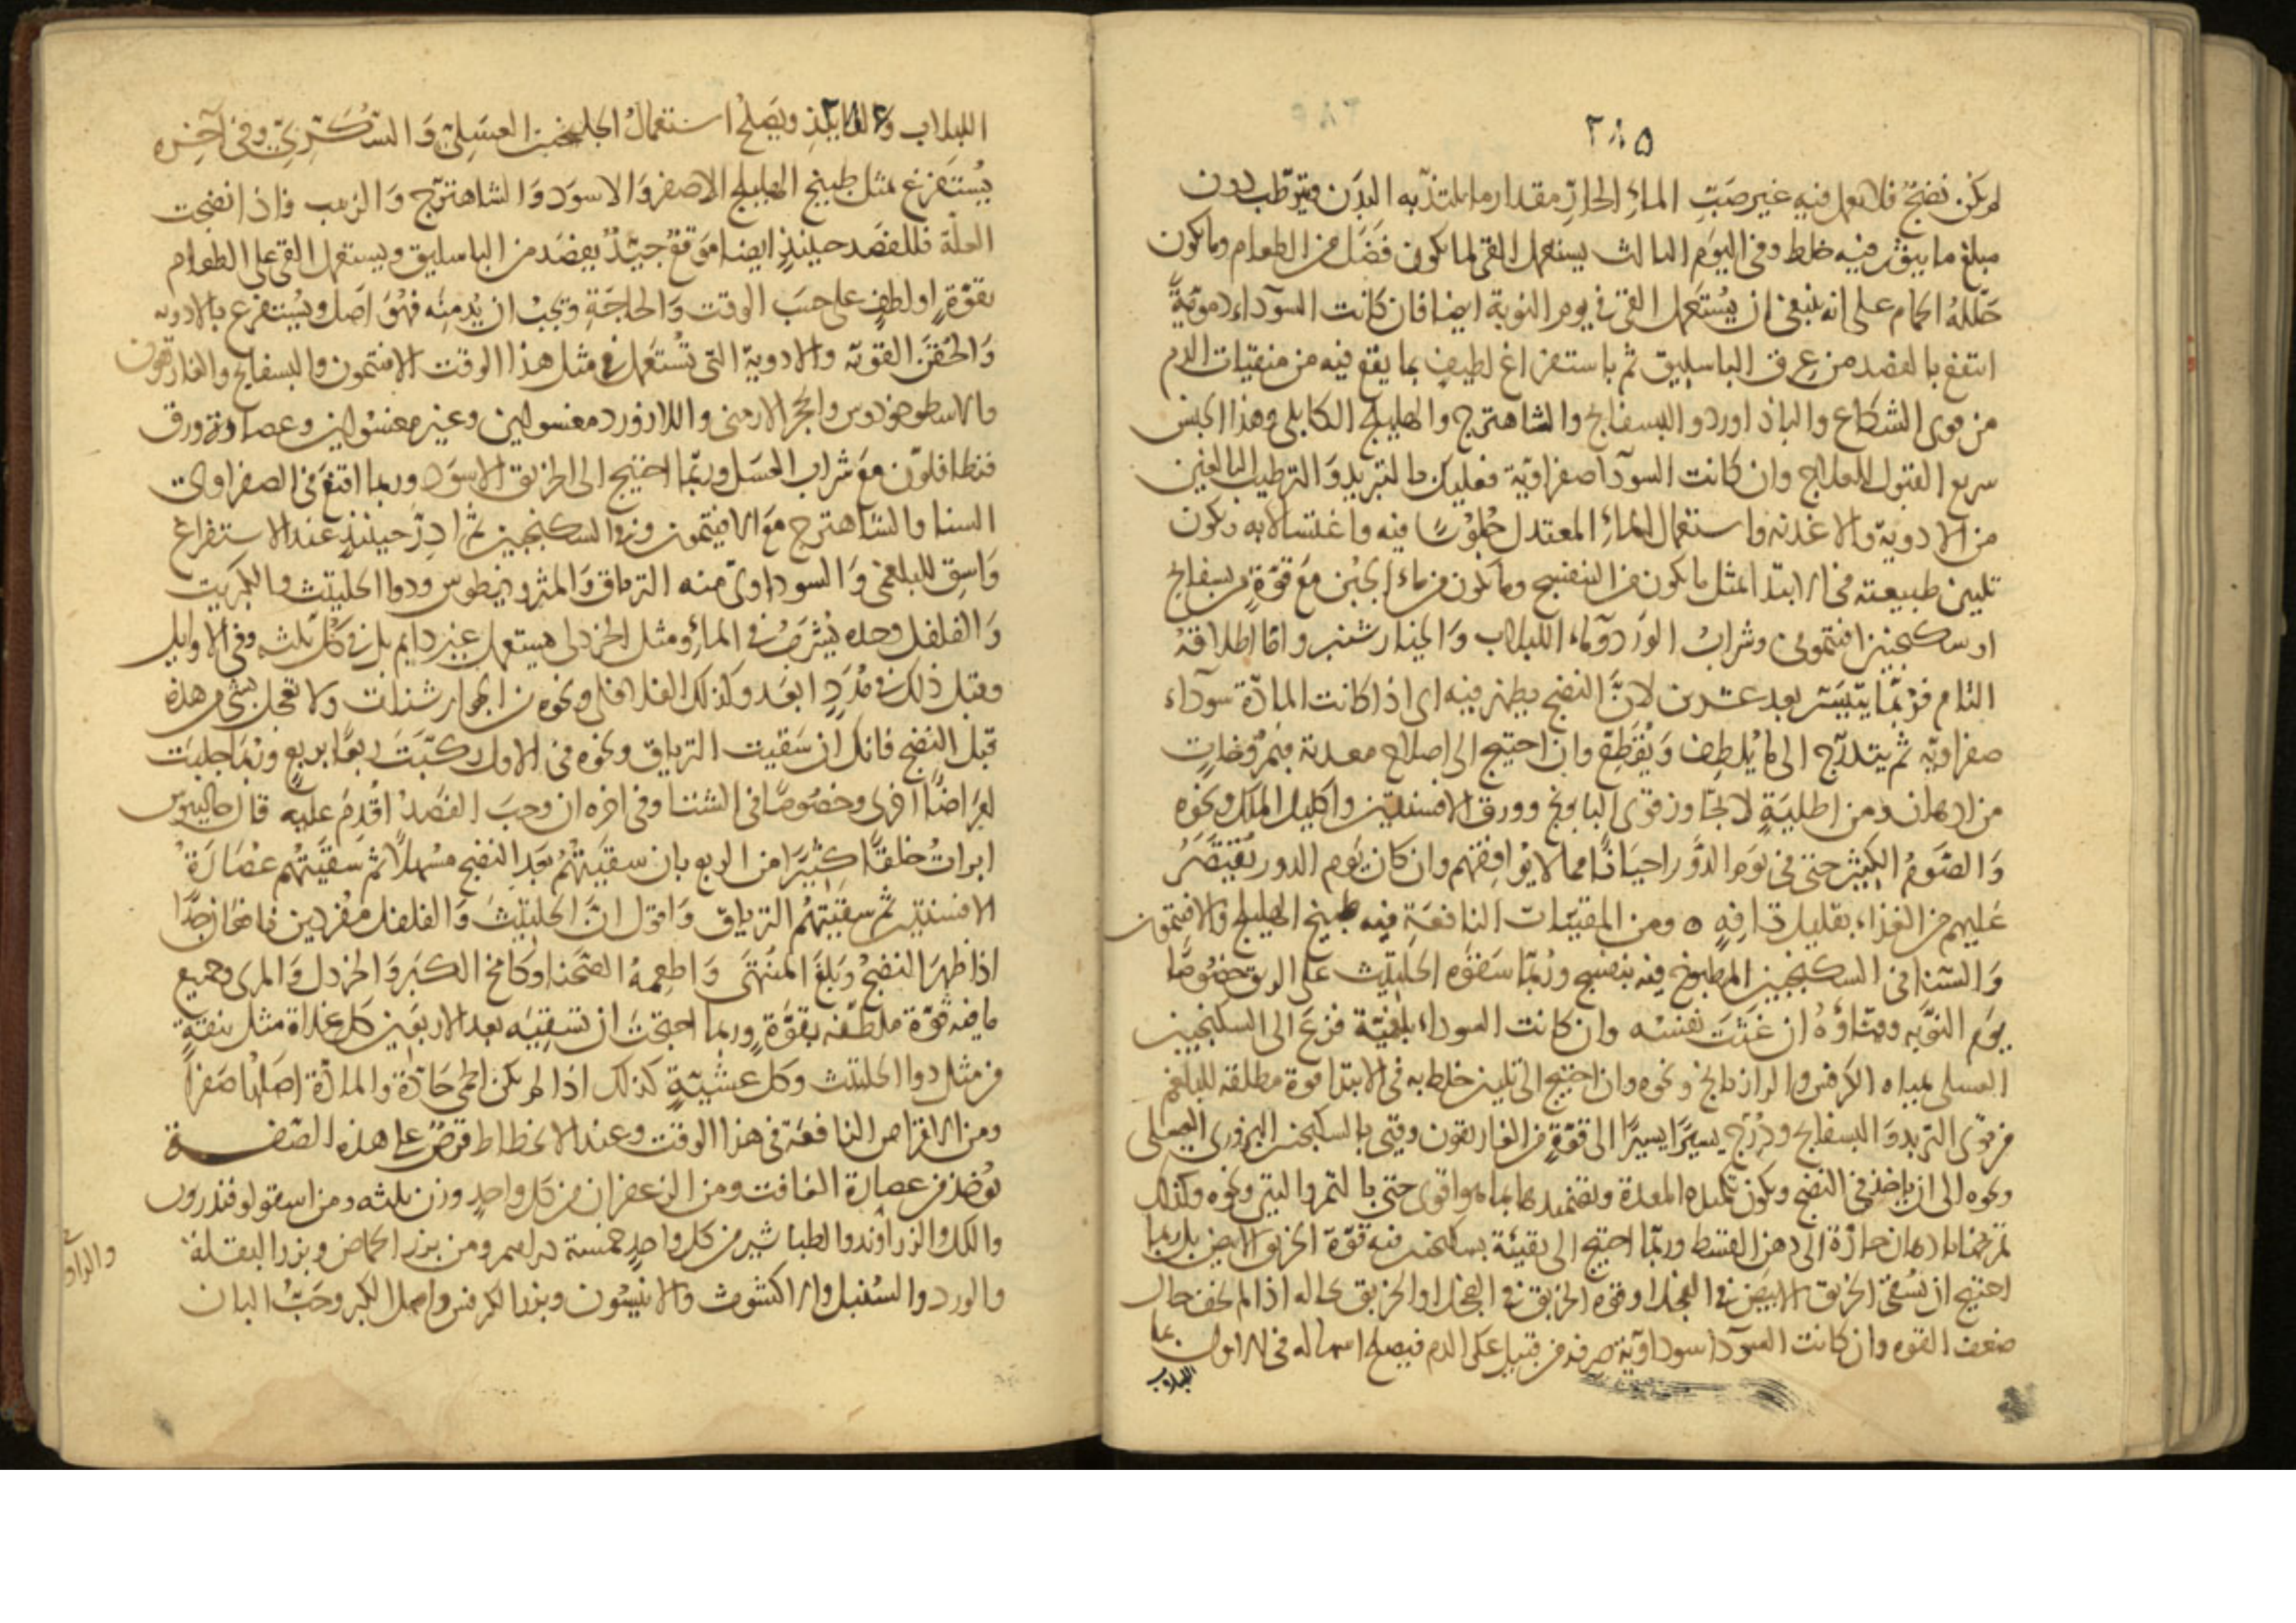 ٢٨٥
لم يكن نضج فلا تعمل فيه غير صب الماء الحار مقدار ما يلتذ به البدن ويترطب دون
مبلغ ما يبثور فيه خلط وفى اليوم الثالث يستعمل القى لما يكون فضل من الطعام وما يكون
حلله الحمام على انه ينبغى ان يستعمل القى فى يوم النوبة ايضا فان كانت السوداء دموية
انتفع بالفصد من عرق الباسليق ثم باستفراغ لطيف بما يقع فيه من منقيات الدم
من قوى الشكاع والباذاورد والبسفايج والشاهترج والهليلج الكابلى وهذا الجنس
سريع القبول للعلاج وان كانت السودا صفراوية فعليك بالتبريد والترطيب البالغين
من الادوية والاغذية واستعمال الماء المعتدل جلوسا فيه واغتسالا به ويكون
تليين طبيعته فى الابتدا بمثل ما يكون من البنفسج وما يكون من ماء الجبن مع قوة من بسفايج
او سكنجبين افتمونى وشراب الورد وماء اللبلاب والخيار شنبر واما اطلاقه
التام فربما يتيسر بعد عشرين لان النضج يظهر فيه اى اذا كانت المادة سوداء
صفراوية ثم يتدرج الى ما يلطف ويقطع وان احتيج الى اصلاح معدته فبمروخات
من ادهان ومن اطلية لا تجاوز قوى البابونج وورق الافسنتين واكليل الملك ونحوه
والصوم الكثير حتى فى يوم الدور احيانا مما لا يوافقهم وان كان يوم الدور يقتصر
عليهم من الغذاء بقليل تافه ٥ ومن المقيئات النافعة فيه طبيخ الهليلج والافتمون
والسنا فى السكنجبين المطبوخ فيه بنفسج وربما سقوه الحلتيث على الريق خصوصا
يوم النوبة وقتاؤه ان غثت نفسه وان كانت السوداء بلغمية فزع الى السكنجبين
العسلى بمياه الكرفس والرازيانج ونحوه وان احتيج الى تليين خلط به فى الابتدا قوة مطلقة للبلغم
من قوى التربد والبسفايج ودرج يسيرا يسيرا الى قوة من الغاريقون وقيى بالسكنجبين البزورى العسلى
ونحوه الى ان ياخذ فى النضج ويكون تكميده المعدة وتضميدها بما هو اقوى حتى بالتمر والتين ونحوه وكذلك
تمرخها بادهان حارة الى دهن القسط وربما احتيج الى تقيئة بسكنجبين فيه قوة الخربق الابيض بل ربما
احتيج ان تسقى الخربق الابيض فى الفجل او قوة الخربق فى الفجل او الخربق بحاله اذا لم تخف حال
ضعف القوة وان كانت السودا سوداوية صرفة من قبيل عكر الدم فيصلح اسهاله فى الاول بماء
اللبلاب
٢٨٦
اللبلاب والفانيذ ويصلح استعمال الجلنجبين العسلى والسكرى وفى آخره
يستفرغ بمثل طبيخ الهليلج الاصفر والاسود والشاهترج والزبيب فاذا نضجت
العلة فللفصد حينئذ ايضا موقع جيد يفصد من الباسليق ويستعمل القى على الطعام
بقوة او لطف على حسب الوقت والحاجة ويجب ان يدمنه فهو اصل ويستفرغ بالادوية
والحقن القوية والادوية التى تستعمل فى مثل هذا الوقت الافتمون والبسفايج والغاريقون
والاسطوخودوس والحجر الارمنى واللازورد مغسولين وغير مغسولين وعصارة ورق
قنطافلون مع شراب العسل وربما احتيج الى الخربق الاسود وربما اقنع فى الصفراوى
السنا والشاهترج مع الافيتمون وفى السكنجبين ثم ادر حينئذ عند الاستفراغ
واسق للبلغمى والسوداوى منه الترياق والمثروديطوس ودوا الحلتيث والكبريت
والفلفل وحده يشرب فى الماء ومثل الخردل يستعمل غير دايم بل فى كل ثلثه وفى الاوايل
وقبل ذلك فى مدد ابعد وكذلك الفلافلى ونحوه من الجوارشنات ولا تعجل بشى من هذه
قبل النضج فانك ان سقيت الترياق ونحوه فى الاول ركبت ربعا بربع وربما جلبت
امراضا اخرى وخصوصا فى الشتا وفى اخره ان وجب الفصد اقدم عليه قال جالينوس
ابرات خلقا كثيرا من الربع بان سقيتهم بعد النضج مسهلا ثم سقيتهم عصارة
الافسنتين ثم سقيتهم الترياق واقول ان الحلتيث والفلفل مفردين نافعان جدا
اذا ظهر النضج وبلغ المنتهى واطعمه الصحنا وكامخ الكبر والخردل والمرى وجميع
ما فيه قوة ملطفة بقوة وربما احتجت ان تسقيه بعد الاربعين كل غداة مثل بندقة
من مثل دوا الحلتيث وكل عشية كذلك اذا لم يكن الحمى حادة والمادة اصلها صفرا
ومن الاقراص النافعة فى هذا الوقت وعند الانحطاط قرص على هذه الصفة
يوخذ من عصارة الغافت ومن الزعفران من كل واحد وزن ثلثه ومن اسقولوقندرون
واللك والزراوند والطباشير من كل واحد خمسة دراهم ومن بزر الحماض وبزر البقلة
والورد والسنبل والاكشوث والانيسون وبزر الكرفس واصل الكبر وحب البان